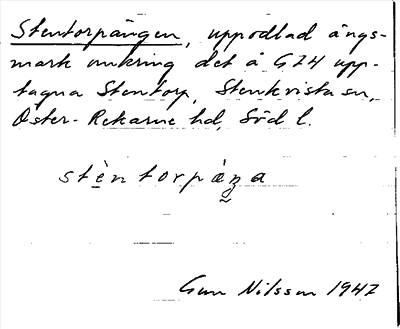 Stentorpängen, uppodlad ängs-
mark omkring det å GZH upp-
tagna Stentorp, Stenkvista sn,
Öster-Rekarne hd, Söd l.
stèntorpàŋa
Gun Nilsson 1947